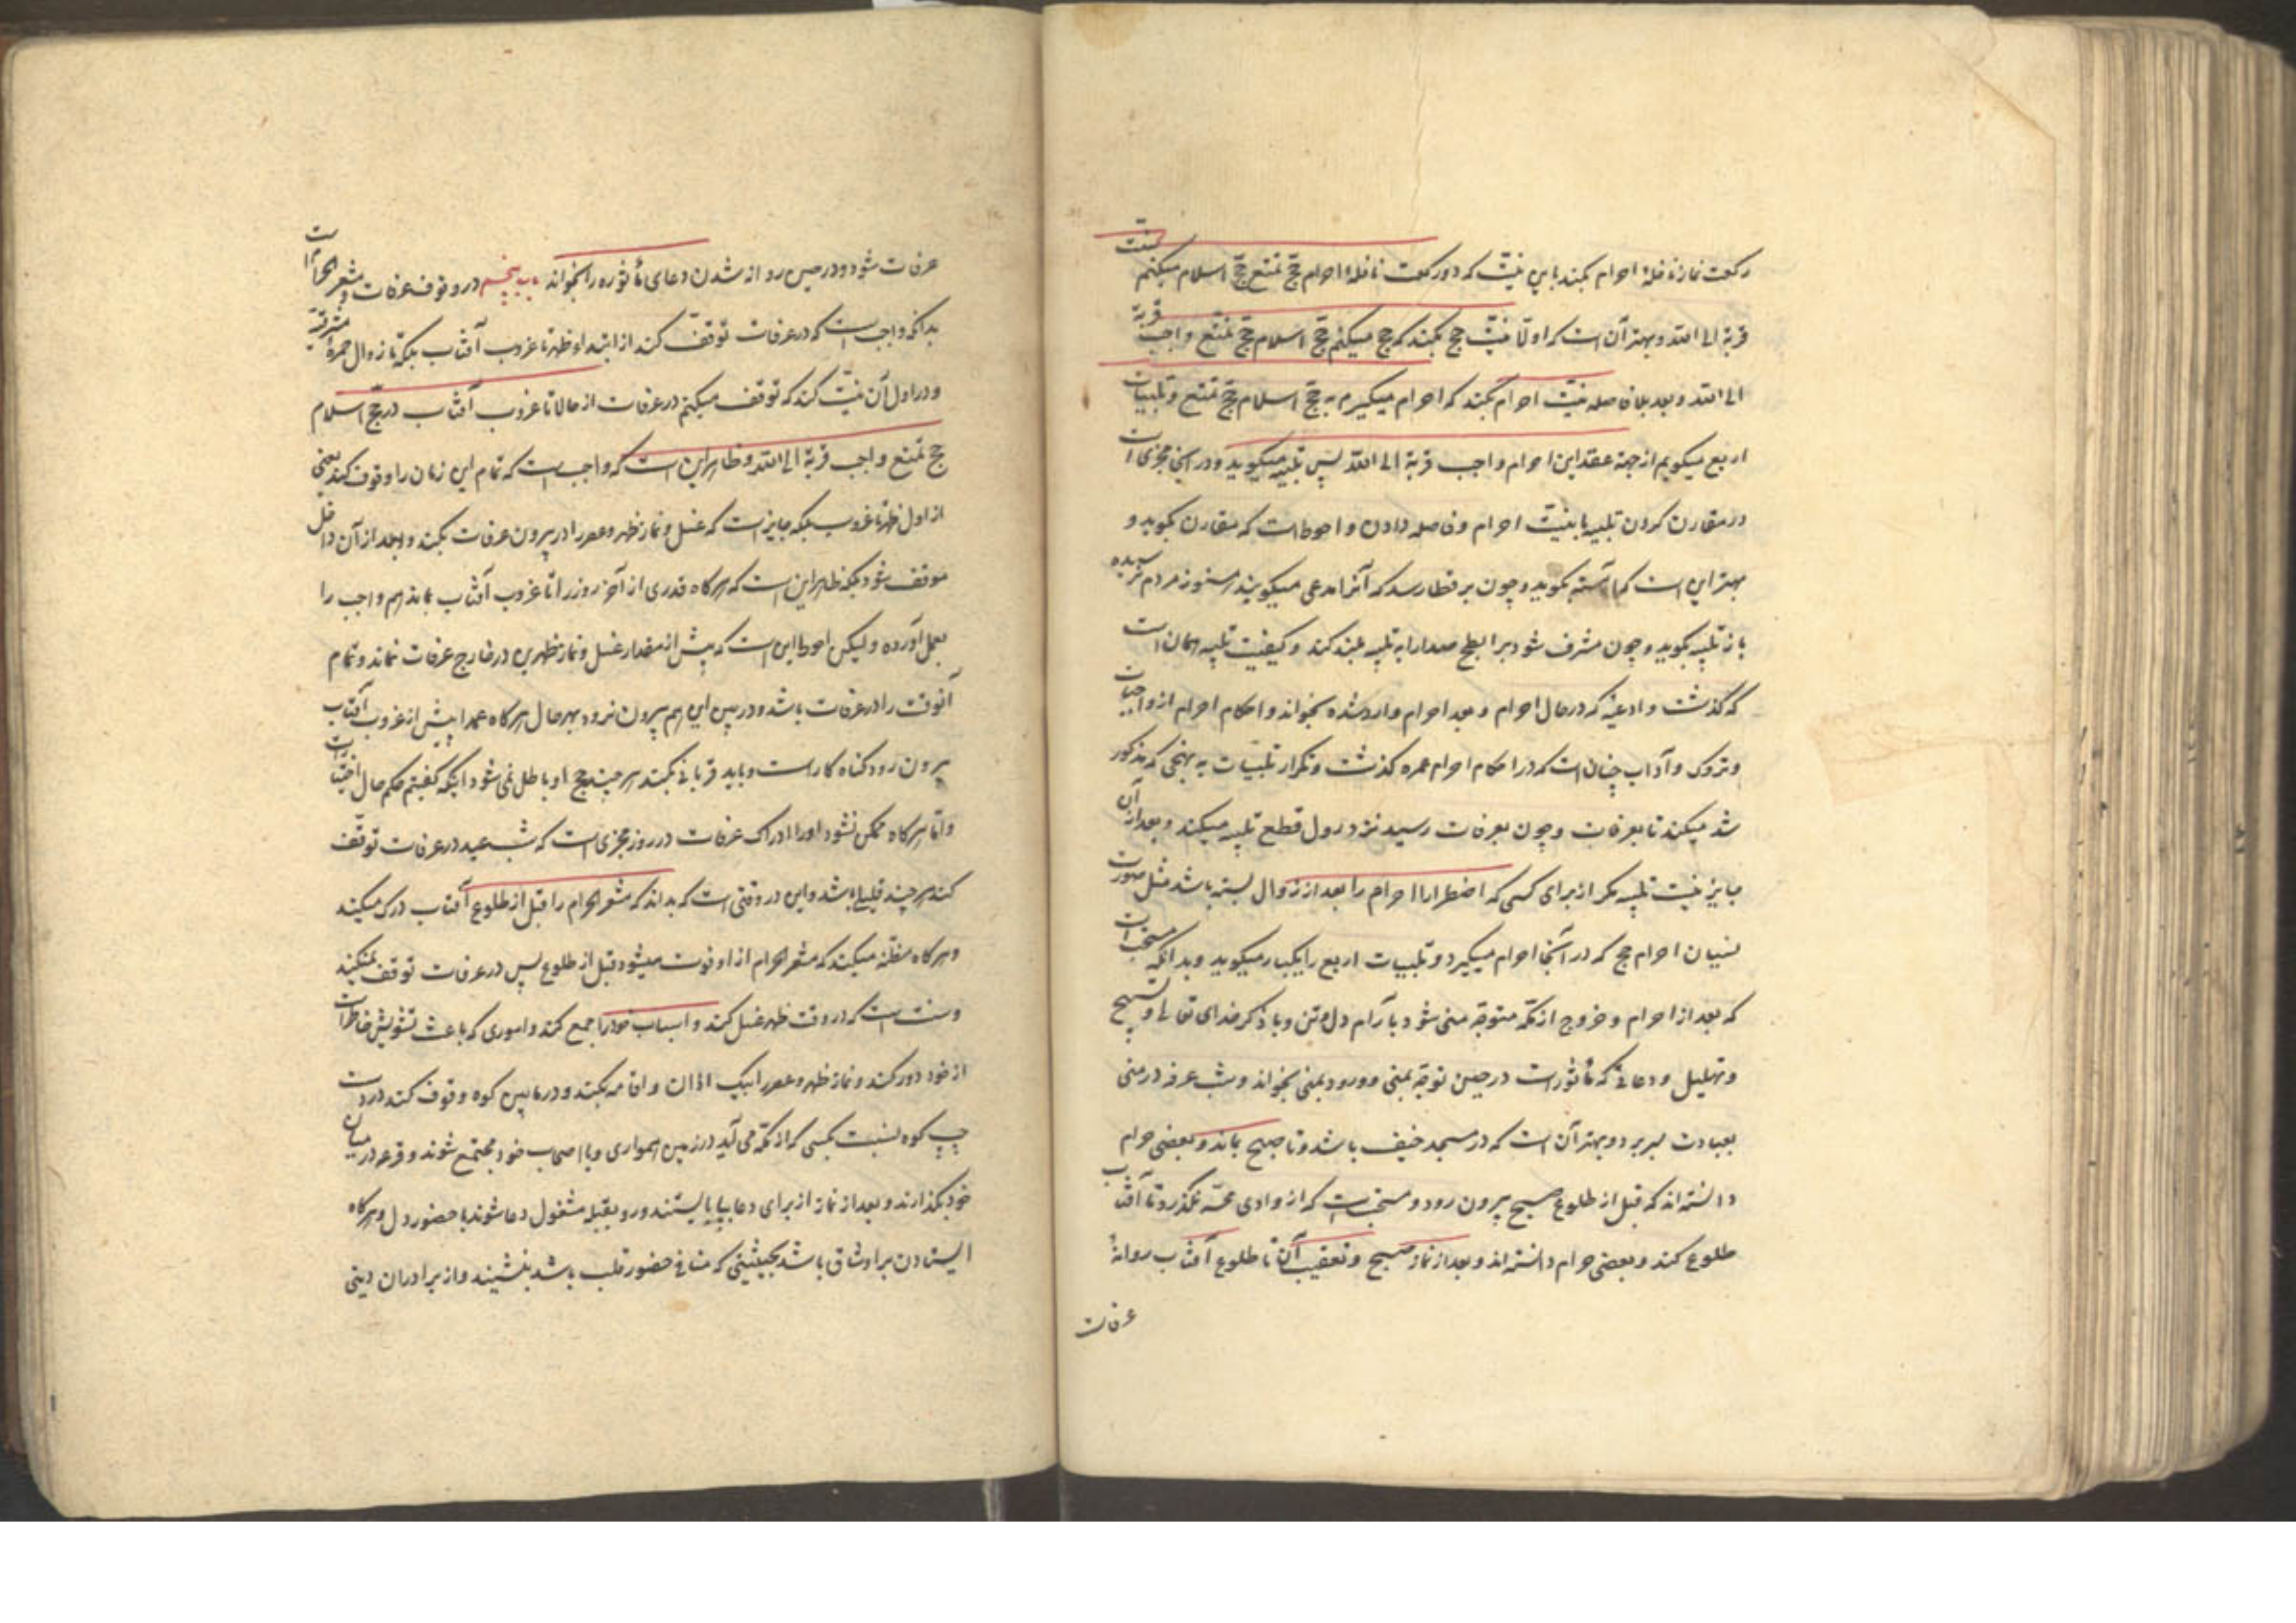 رکعت نماز نافلهٔ احرام بکند باین نیّت که دو رکعت نافلهٔ احرام حجّ تمتع حجّ اسلام میکنم سنّت
قربة الی الله و بهتر آن است که اولا نیّت حج بکند که حج میکنم حجّ اسلام حجّ تمتّع واجب قربة
الی الله و بعد بلا فاصله نیّت احرام بکند که احرام میگیرم به حجّ اسلام حجّ تمتع و تلبیات
اربع میگویم از جهة عقد این احرام واجب قربة الی الله پس تلبیه میگوید و در اینجا مجزی است
در مقارن کردن تلبیه با نیّت احرام و فاصله دادن و احوط است که مقارن بگوید و
بهتر این است که آهسته بگوید و چون برقطا رسد که آنرا مدعی میگویند هنوز مردم نرسیده
باز تلبیه بگوید و چون مشرف شود بر ابطح صدا را به تلبیه بلند کند و کیفیت تلبیه همان است
که گذشت و ادعیهٔ که در حال احرام و بعد احرام وارد شده بخواند و احکام احرام از واجبات
و تروک و آداب چنان است که در احکام احرام عمره گذشت و تکرار تلبیات به نهجی که مذکور
شد میکند تا بعرفات و چون بعرفات رسید نزد زوال قطع تلبیه میکند و بعد از آن
جایز نیست تلبیه مگر از برای کسی که اضطرارا احرام را بعد از زوال بسته باشد مثل صورت
نسیان احرام حج که در آنجا احرام میگیرد و تلبیات اربع را یکبار میگوید و بدانکه مستحب است
که بعد از احرام و خروج از مکّه متوجّه منی شود با آرام دل و تن و با ذکر خدای تعالی و تسبیح
و تهلیل و دعائی که مأثور است در حین توجّه بمنی و ورود بمنی بخواند و شب عرفه در منی
بعبادت بسر برد و بهتر آن است که در مسجد خیف باشد و تا صبح بماند و بعضی حرام
دانسته‌اند که قبل از طلوع صبح بیرون رود و مستحب است که از وادی محسّر نگذرد تا آفتاب
طلوع کند و بعضی حرام دانسته‌اند و بعد از نماز صبح و تعقیب آن تا طلوع آفتاب روانهٔ
عرفات
عرفات شود و در حین روانه شدن دعای مأثوره را بخواند باب پنجم در وقوف عرفات و مشعر الحرام است
بدانکه واجب است که در عرفات توقّف کند از ابتداء ظهر تا غروب آفتاب بلکه تا زوال حمرهٔ مشرقیّه
و در اول آن نیّت کند که توقف میکنم در عرفات از حالا تا غروب آفتاب در حجّ اسلام
حج تمتع واجب قربة الی الله و ظاهر این است که واجب است که تمام این زمان را وقوف کند یعنی
از اول ظهر تا غروب بلکه جایز است که غسل و نماز ظهر و عصر را در بیرون عرفات بکند و بعد از آن داخل
موقف شود بلکه ظاهر این است که هرگاه قدری از آخر روز را تا غروب آفتاب بماند هم واجب را
بعمل آورده و لیکن احوط این است که پیش از مقدار غسل و نماز ظهرین در خارج عرفات نماند و تمام
آنوقت را در عرفات باشد و در بین این هم بیرون نرود بهر حال هرگاه عمدا پیش از غروب آفتاب
بیرون رود گناه کار است و باید قربانی بکند هر چند حج او باطل نمی شود اینکه گفتیم حکم حال اختیار است
و امّا هرگاه ممکن نشود او را ادراک عرفات در روز مجزی است که شب عید در عرفات توقّف
کند هر چند قلیلی باشد و این در وقتی است که بداند که مشعر الحرام را قبل از طلوع آفتاب درک میکند
و هرگاه مظنّه میکند که مشعر الحرام از او فوت میشود قبل از طلوع پس در عرفات توقف نمیکند
و سنت است که در وقت ظهر غسل کند و اسباب خود را جمع کند و اموری که باعث تشویش خاطر است
از خود دور کند و نماز ظهر و عصر را بیک اذان و اقامه بکند و در مابین کوه وقوف کند در دست
چپ کوه بنسبت بکسی که از مکّه می آید در زمین همواری و با اصحاب خود مجتمع شوند و قرعه در میان
خود بگذارند و بعد از نماز از برای دعا بپا بایستند و رو بقبله مشغول دعا شوند با حضور دل و هرگاه
ایستادن بر او شاق باشد بحیثیتی که منافی حضور قلب باشد بنشیند و از برادران دینی